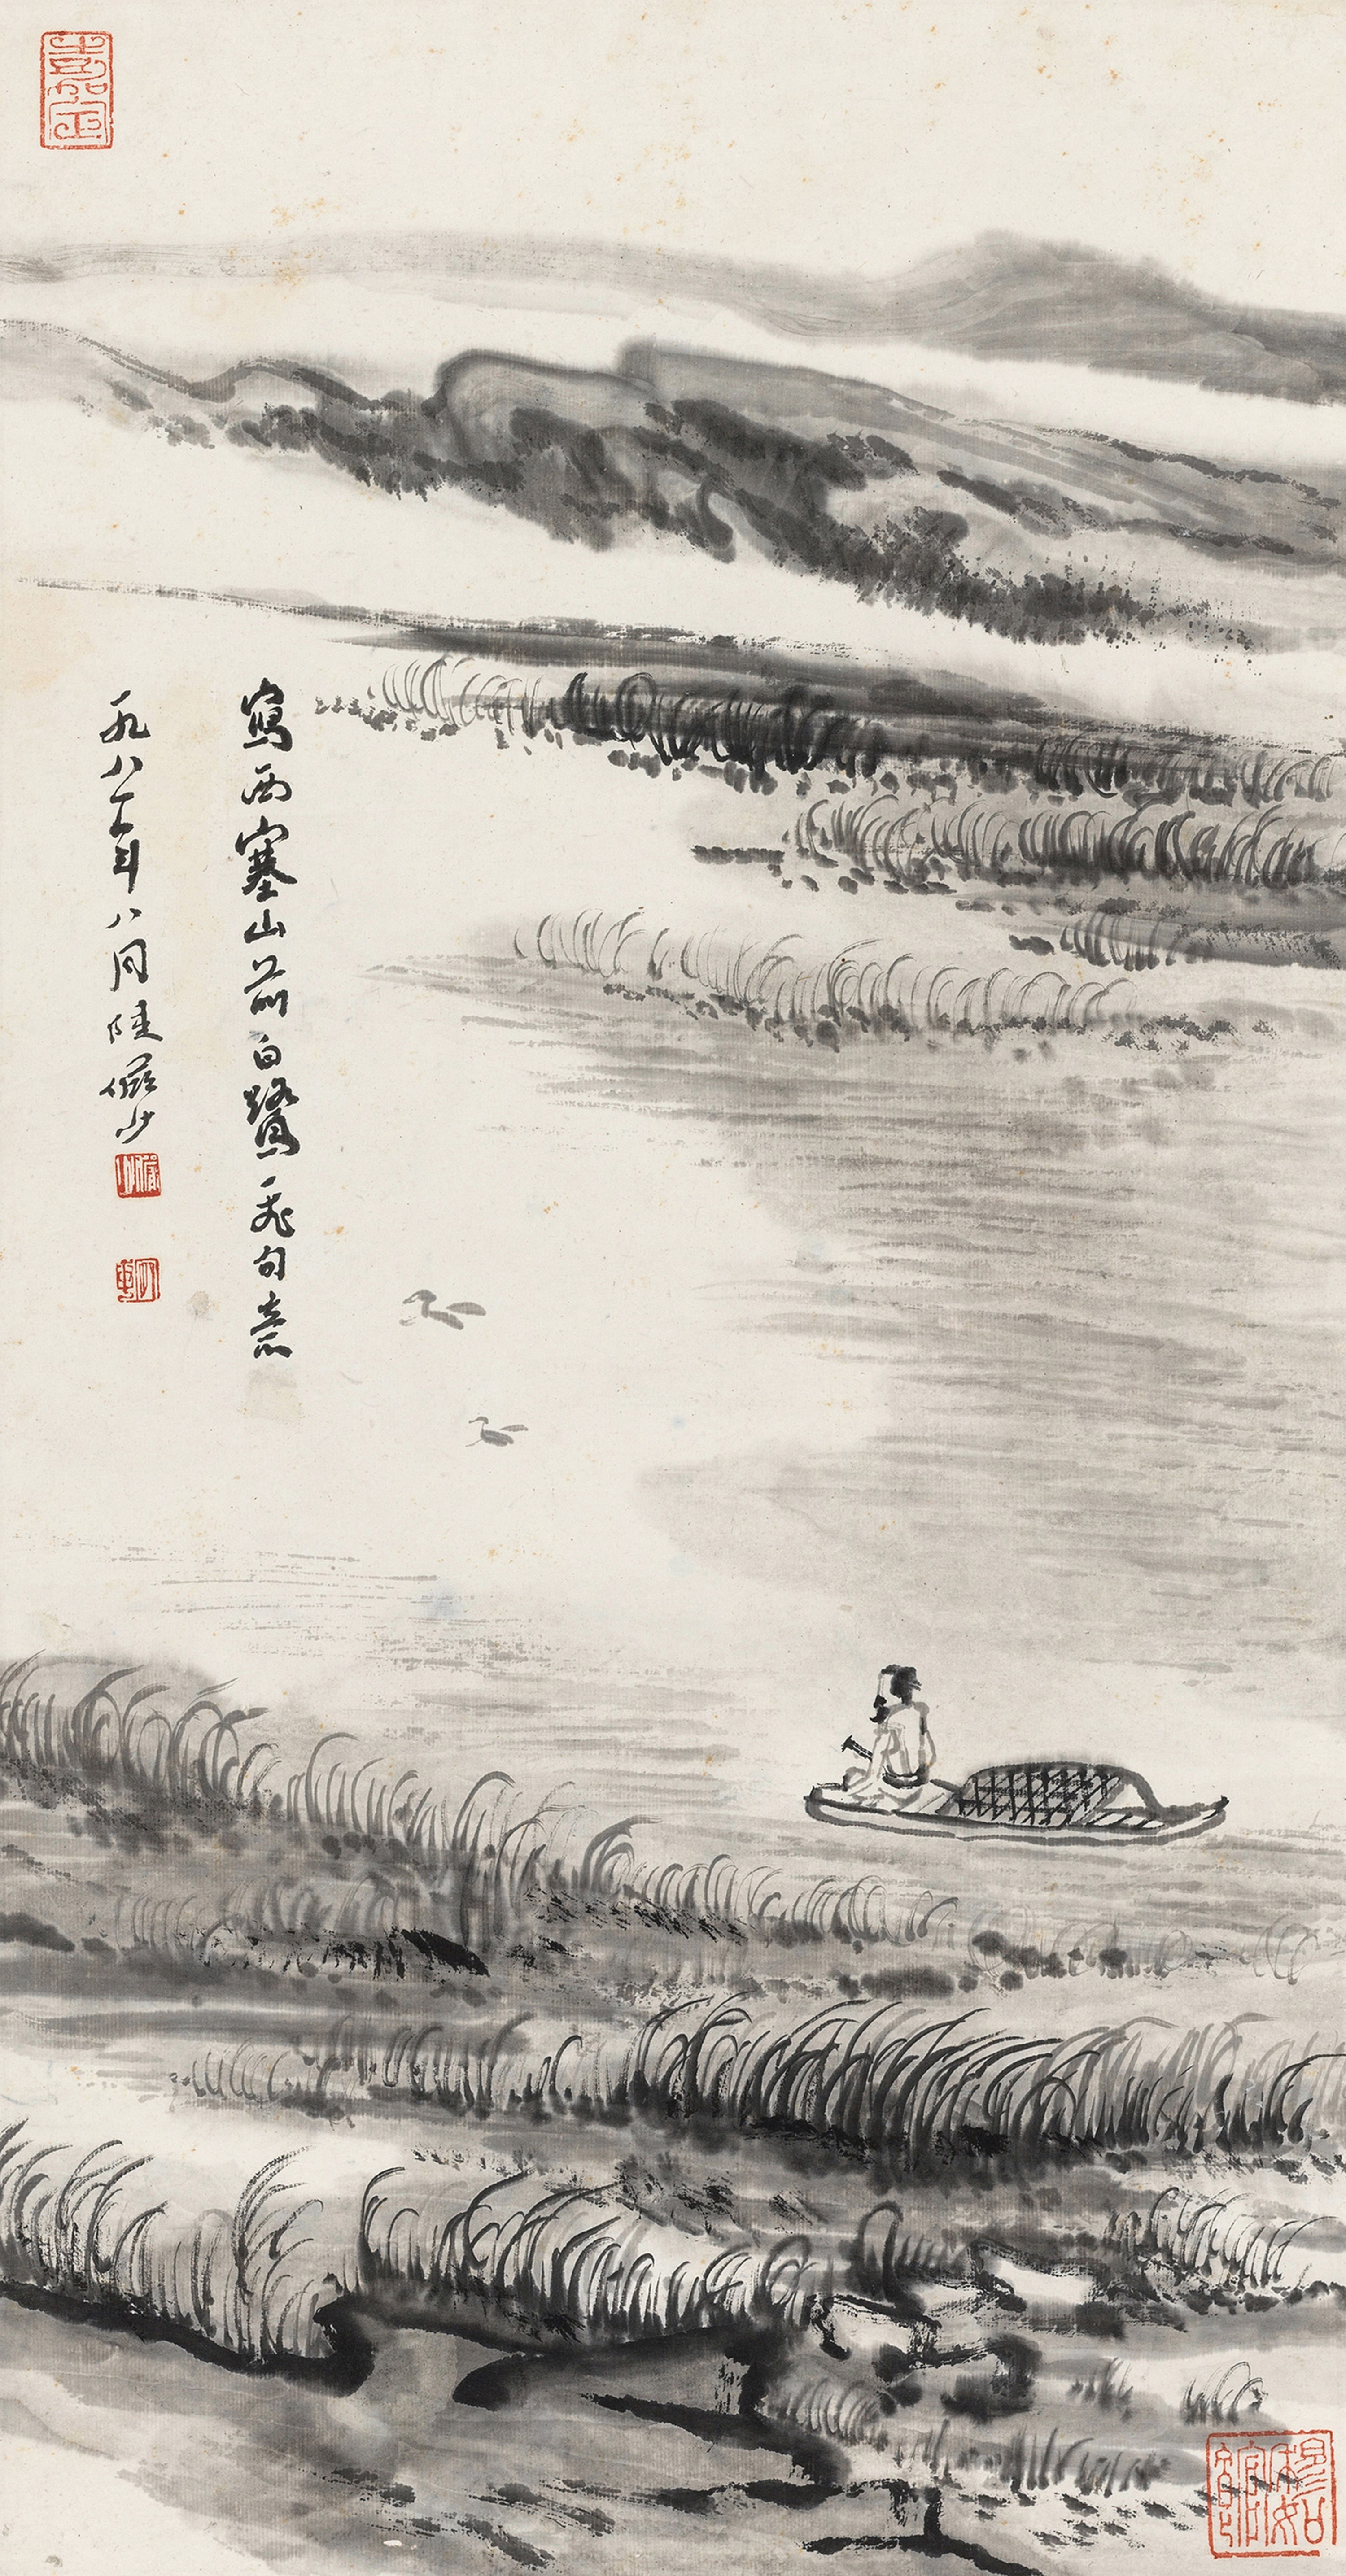 嘉定
寫西塞山前白鷺飛句意
一九八一年八月陸儼少
穆如館